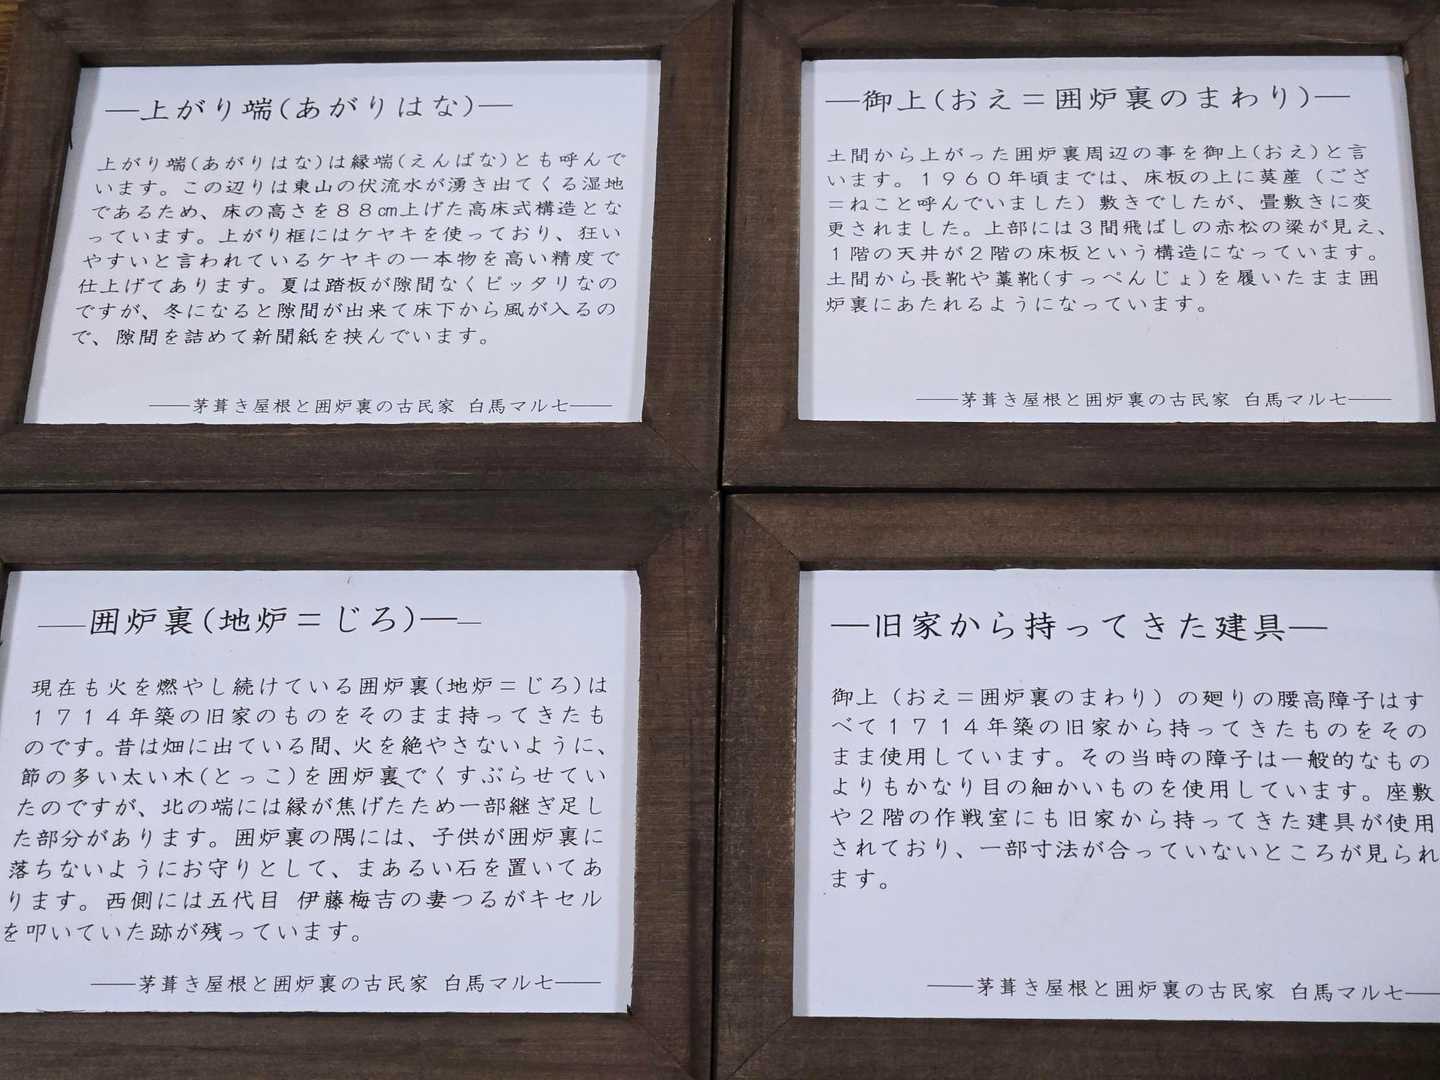 ―上がり端(あがりはな)―
上がり端(あがりはな)は縁端(えんばな)とも呼んで
います。この辺りは東山の伏流水が湧き出てくる湿地
であるため、床の高さを８８㎝上げた高床式構造とな
っています。上がり框にはケヤキを使っており、狂い
やすいと言われているケヤキの一本物を高い精度で
仕上げてあります。夏は踏板が隙間なくピッタリなの
ですが、冬になると隙間が出来て床下から風が入るの
で、隙間を詰めて新聞紙を挟んでいます。
――茅葺き屋根と囲炉裏の古民家 白馬マル七――
―御上(おえ＝囲炉裏のまわり)―
土間から上がった囲炉裏周辺の事を御上(おえ)と言
います。１９６０年頃までは、床板の上に茣蓙（ござ
＝ねこと呼んでいました）敷きでしたが、畳敷きに変
更されました。上部には３間飛ばしの赤松の梁が見え、
１階の天井が２階の床板という構造になっています。
土間から長靴や藁靴(すっぺんじょ)を履いたまま囲
炉裏にあたれるようになっています。
――茅葺き屋根と囲炉裏の古民家 白馬マル七――
――囲炉裏(地炉＝じろ)――
現在も火を燃やし続けている囲炉裏(地炉＝じろ)は
１７１４年築の旧家のものをそのまま持ってきたも
のです。昔は畑に出ている間、火を絶やさないように、
節の多い太い木(とっこ)を囲炉裏でくすぶらせてい
たのですが、北の端には縁が焦げたため一部継ぎ足し
た部分があります。囲炉裏の隅には、子供が囲炉裏に
落ちないようにお守りとして、まあるい石を置いてあ
ります。西側には五代目 伊藤梅吉の妻つるがキセル
を叩いていた跡が残っています。
――茅葺き屋根と囲炉裏の古民家 白馬マル七――
―旧家から持ってきた建具―
御上（おえ＝囲炉裏のまわり）の廻りの腰高障子はす
べて１７１４年築の旧家から持ってきたものをその
まま使用しています。その当時の障子は一般的なもの
よりもかなり目の細かいものを使用しています。座敷
や２階の作戦室にも旧家から持ってきた建具が使用
されており、一部寸法が合っていないところが見られ
ます。
――茅葺き屋根と囲炉裏の古民家 白馬マル七――